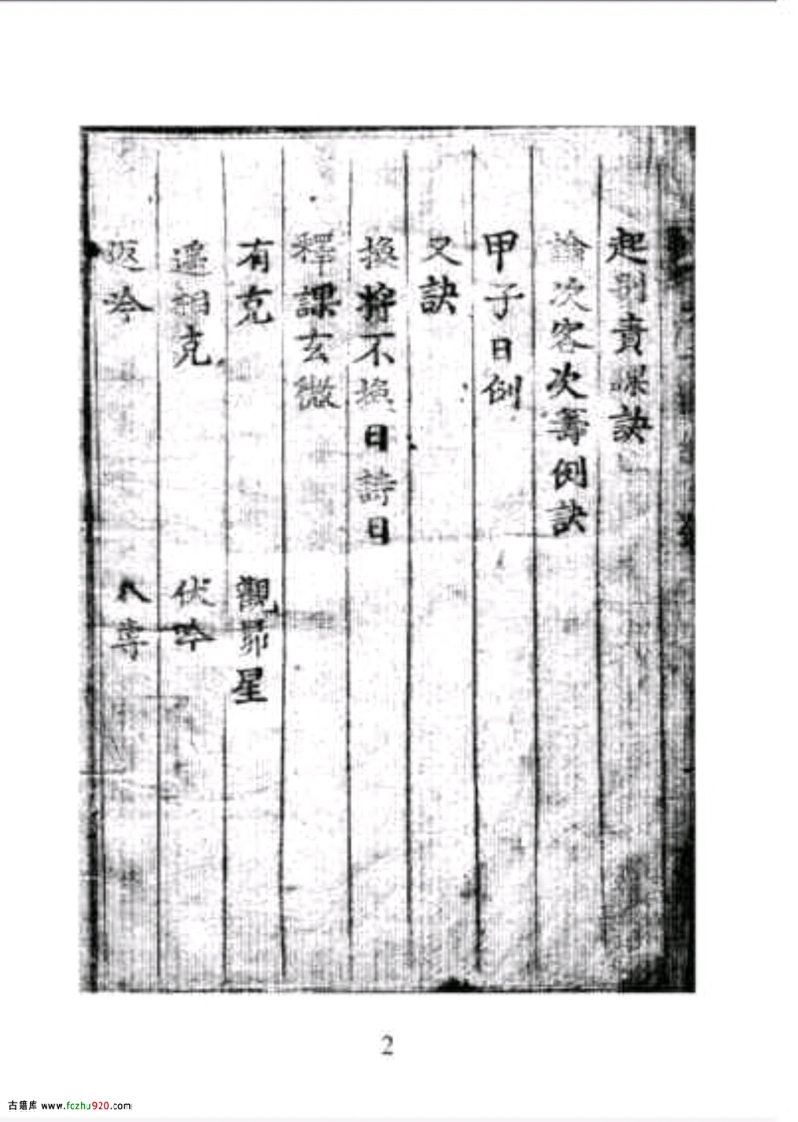 起別責課訣
論次客次籌例訣
甲子日例
又訣
換將不換日詩日
釋課玄微
有克　觀昴星
遥相克　伏吟
返吟　八專
2
古籍库 www.fczhu920.com